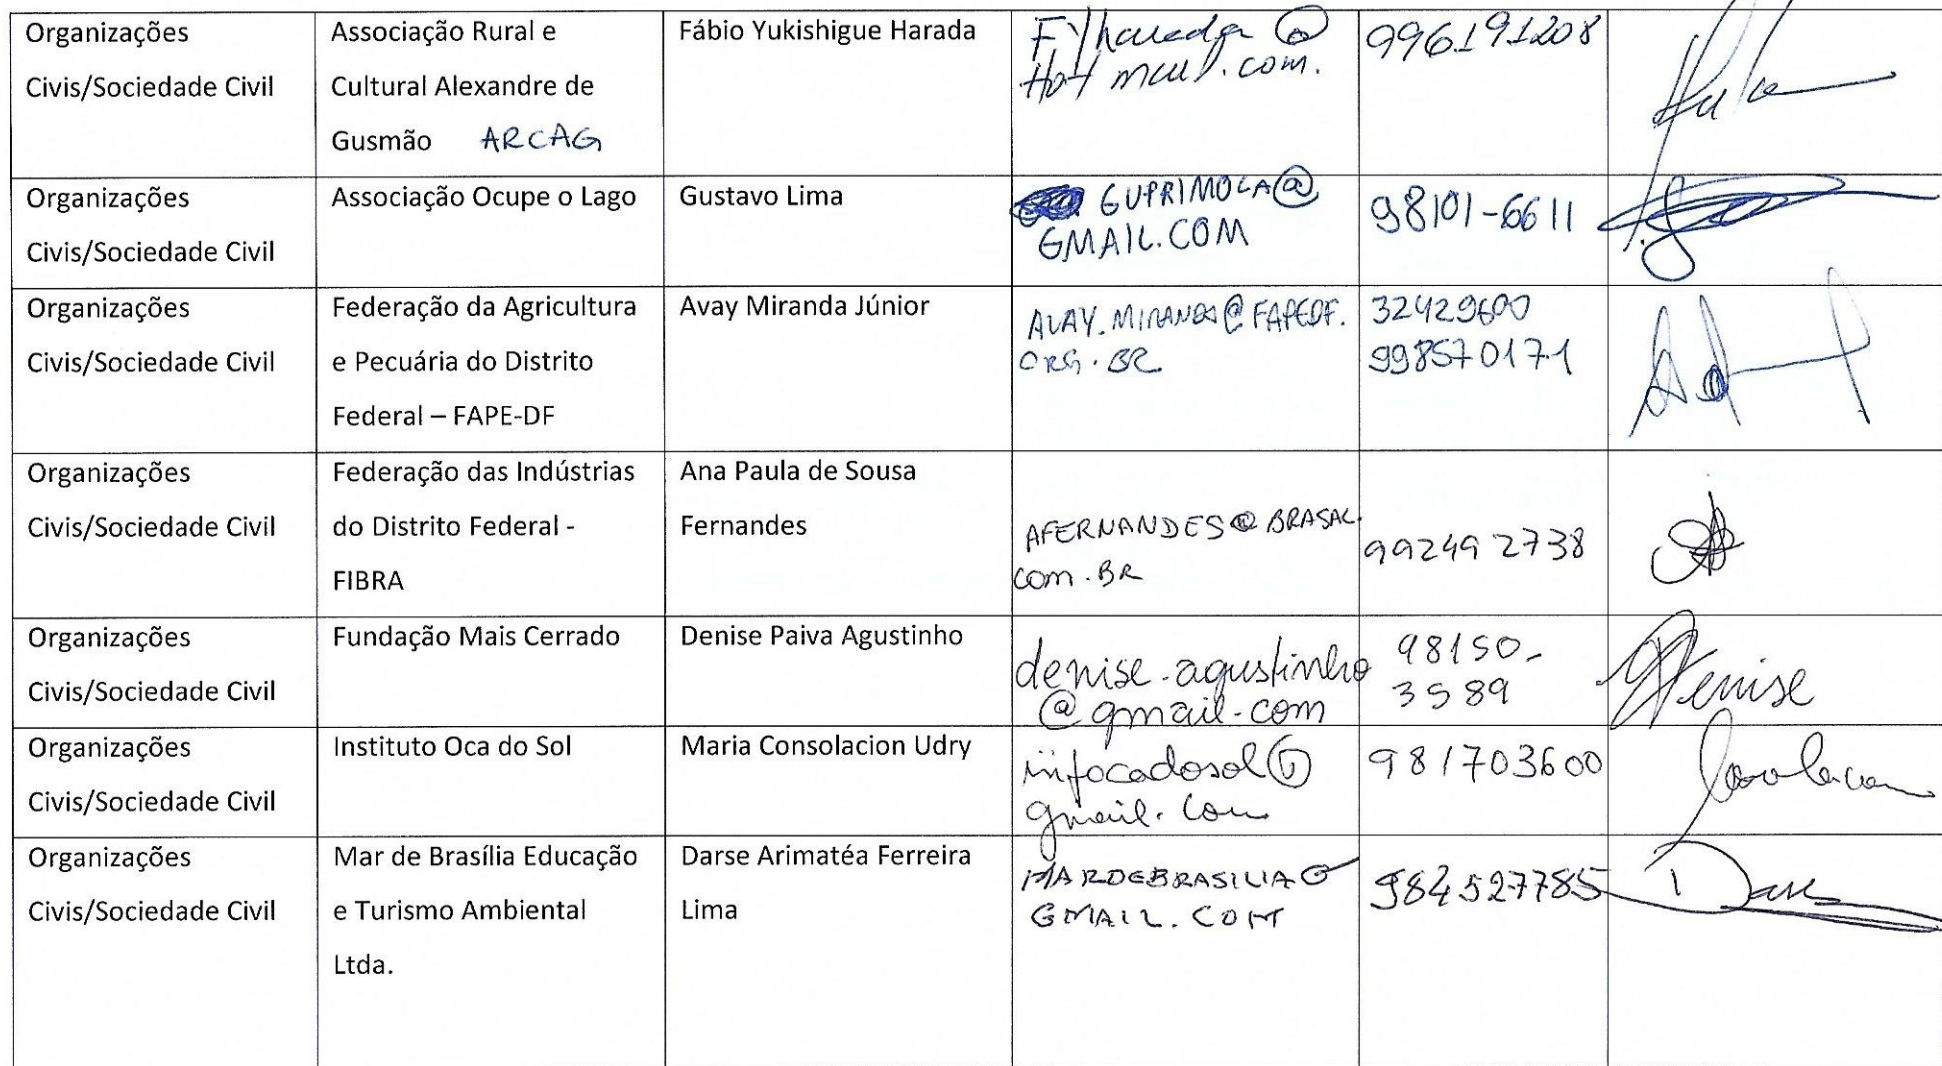 Organizações
Civis/Sociedade Civil
Associação Rural e
Cultural Alexandre de
Gusmão ARCAG
Fábio Yukishigue Harada
Fyharada@
Hotmail.com.
996191208
Organizações
Civis/Sociedade Civil
Associação Ocupe o Lago
Gustavo Lima
GUPRIMOLA@
GMAIL.COM
98101-6611
Organizações
Civis/Sociedade Civil
Federação da Agricultura
e Pecuária do Distrito
Federal – FAPE-DF
Avay Miranda Júnior
AVAY.MIRANDA@FAPEDF.
ORG.BR
32429600
998570171
Organizações
Civis/Sociedade Civil
Federação das Indústrias
do Distrito Federal -
FIBRA
Ana Paula de Sousa
Fernandes
AFERNANDES@BRASAL.
com.BR
992492738
Organizações
Civis/Sociedade Civil
Fundação Mais Cerrado
Denise Paiva Agustinho
denise.agustinho
@gmail.com
98150-
3589
Denise
Organizações
Civis/Sociedade Civil
Instituto Oca do Sol
Maria Consolacion Udry
infocadosol@
gmail.com
981703600
Organizações
Civis/Sociedade Civil
Mar de Brasília Educação
e Turismo Ambiental
Ltda.
Darse Arimatéa Ferreira
Lima
MARDEBRASILIA@
GMAIL.COM
984527785